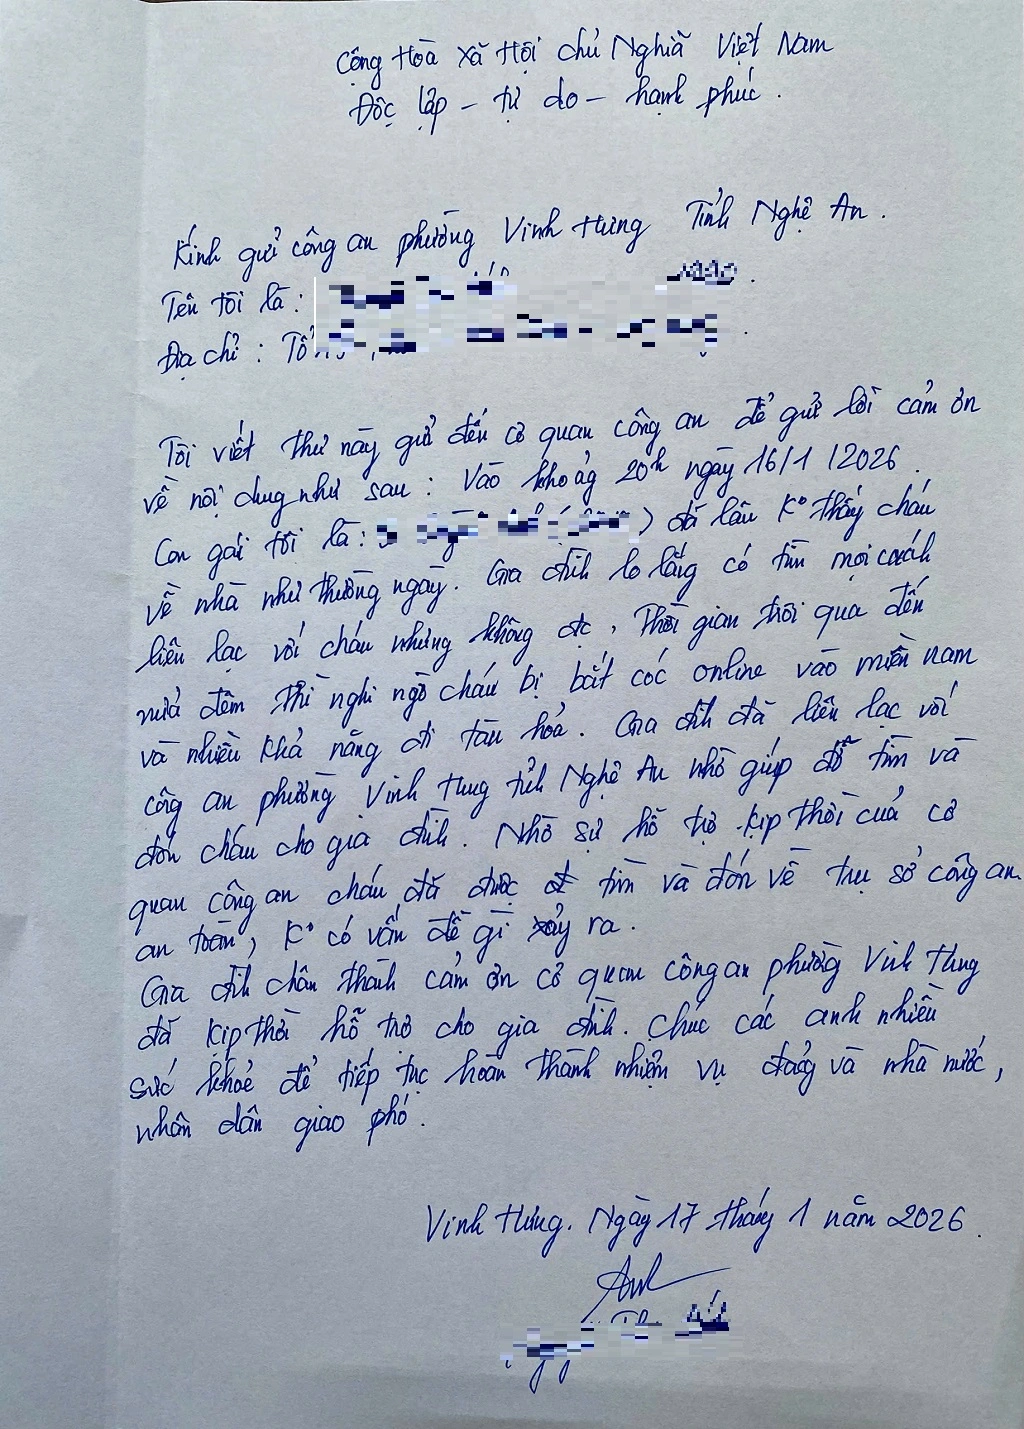 Cộng Hòa Xã Hội chủ Nghĩa Việt Nam
Độc lập - tự do - hạnh phúc.
Kính gửi công an phường Vinh Hưng Tỉnh Nghệ An.
Tên tôi là:
Địa chỉ: Tổ
Tôi viết thư này gửi đến cơ quan công an để gửi lời cảm ơn
về nội dung như sau: Vào khoảg 20h ngày 16/1/2026.
Con gái tôi là: ) đã lâu K° thấy cháu
về nhà như thường ngày. Gia đình lo lắng có tìm mọi cách
liên lạc với cháu nhưng không đc, Thời gian trôi qua đến
nửa đêm thì nghi ngờ cháu bị bắt cóc online vào miền nam
và nhiều khả năng đi tàu hỏa. Gia đình đã liên lạc với
công an phường Vinh Hưng tỉnh Nghệ An nhờ giúp đỡ tìm và
đón cháu cho gia đình. Nhờ sự hỗ trợ kịp thời của cơ
quan công an cháu đã được tìm và đón về trụ sở công an
an toàn, K° có vấn đề gì xảy ra.
Gia đình chân thành cảm ơn cơ quan công an phường Vinh Hưng
đã kịp thời hỗ trợ cho gia đình. Chúc các anh nhiều
sức khỏe để tiếp tục hoàn thành nhiệm vụ đảng và nhà nước,
nhân dân giao phó.
Vinh Hưng. Ngày 17 tháng 1 năm 2026.